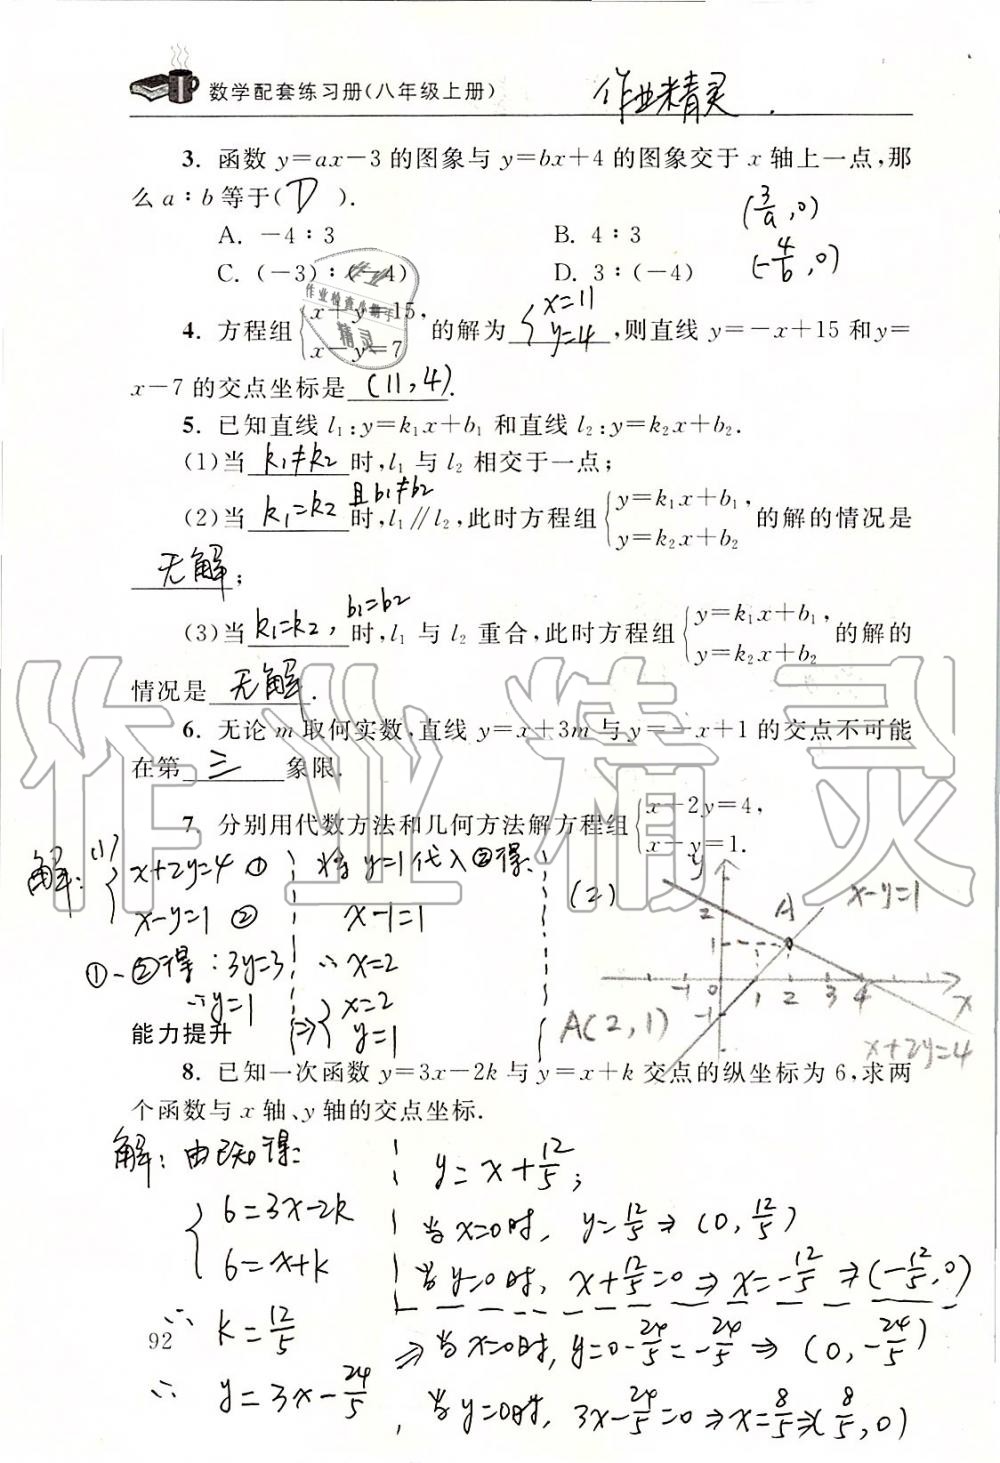 数学配套练习册(八年级上册)
作业精灵
3. 函数 y=ax-3 的图象与 y=bx+4 的图象交于 x 轴上一点,那
么 a∶b 等于( D ).
(3/a,0)
A. -4∶3 B. 4∶3
C. (-3)∶(-4) D. 3∶(-4)
(-4/b,0)
4. 方程组 { x+y=15, x-y=7 的解为 { x=11 y=4 ,则直线 y=-x+15 和y=
x-7 的交点坐标是 (11,4).
5. 已知直线 l₁:y=k₁x+b₁ 和直线 l₂:y=k₂x+b₂.
(1)当 k₁≠k₂ 时,l₁ 与 l₂ 相交于一点;
(2)当 k₁=k₂ 且b₁≠b₂ 时,l₁∥l₂,此时方程组 { y=k₁x+b₁, y=k₂x+b₂ 的解的情况是
无解;
(3)当 k₁=k₂, b₁=b₂ 时,l₁ 与 l₂ 重合,此时方程组 { y=k₁x+b₁, y=k₂x+b₂ 的解的
情况是 无解.
6. 无论 m 取何实数,直线 y=x+3m 与 y=-x+1 的交点不可能
在第 三 象限.
7. 分别用代数方法和几何方法解方程组 { x+2y=4, x-y=1.
解:(1) { x+2y=4 ①
x-y=1 ②
①-②得:3y=3
∴y=1
将 y=1代入②得:
x-1=1
∴x=2
⇒ { x=2 y=1
(2)
y
2
A
x-y=1
1
-1 0 1 2 3 4 x
-1
A(2,1)
x+2y=4
能力提升
8. 已知一次函数 y=3x-2k 与 y=x+k 交点的纵坐标为 6,求两
个函数与 x 轴、y 轴的交点坐标.
解:由已知得:
{ 6=3x-2k
6=x+k
∴ k=12/5
∴ y=3x-24/5,
y=x+12/5;
当x=0时, y=12/5 ⇒ (0,12/5)
当y=0时, x+12/5=0 ⇒ x=-12/5 ⇒(-12/5,0)
⇒当x=0时, y=0-24/5=-24/5 ⇒ (0,-24/5)
当y=0时, 3x-24/5=0⇒x=8/5⇒(8/5,0)
92
作业精灵
作业检查小助手
精灵